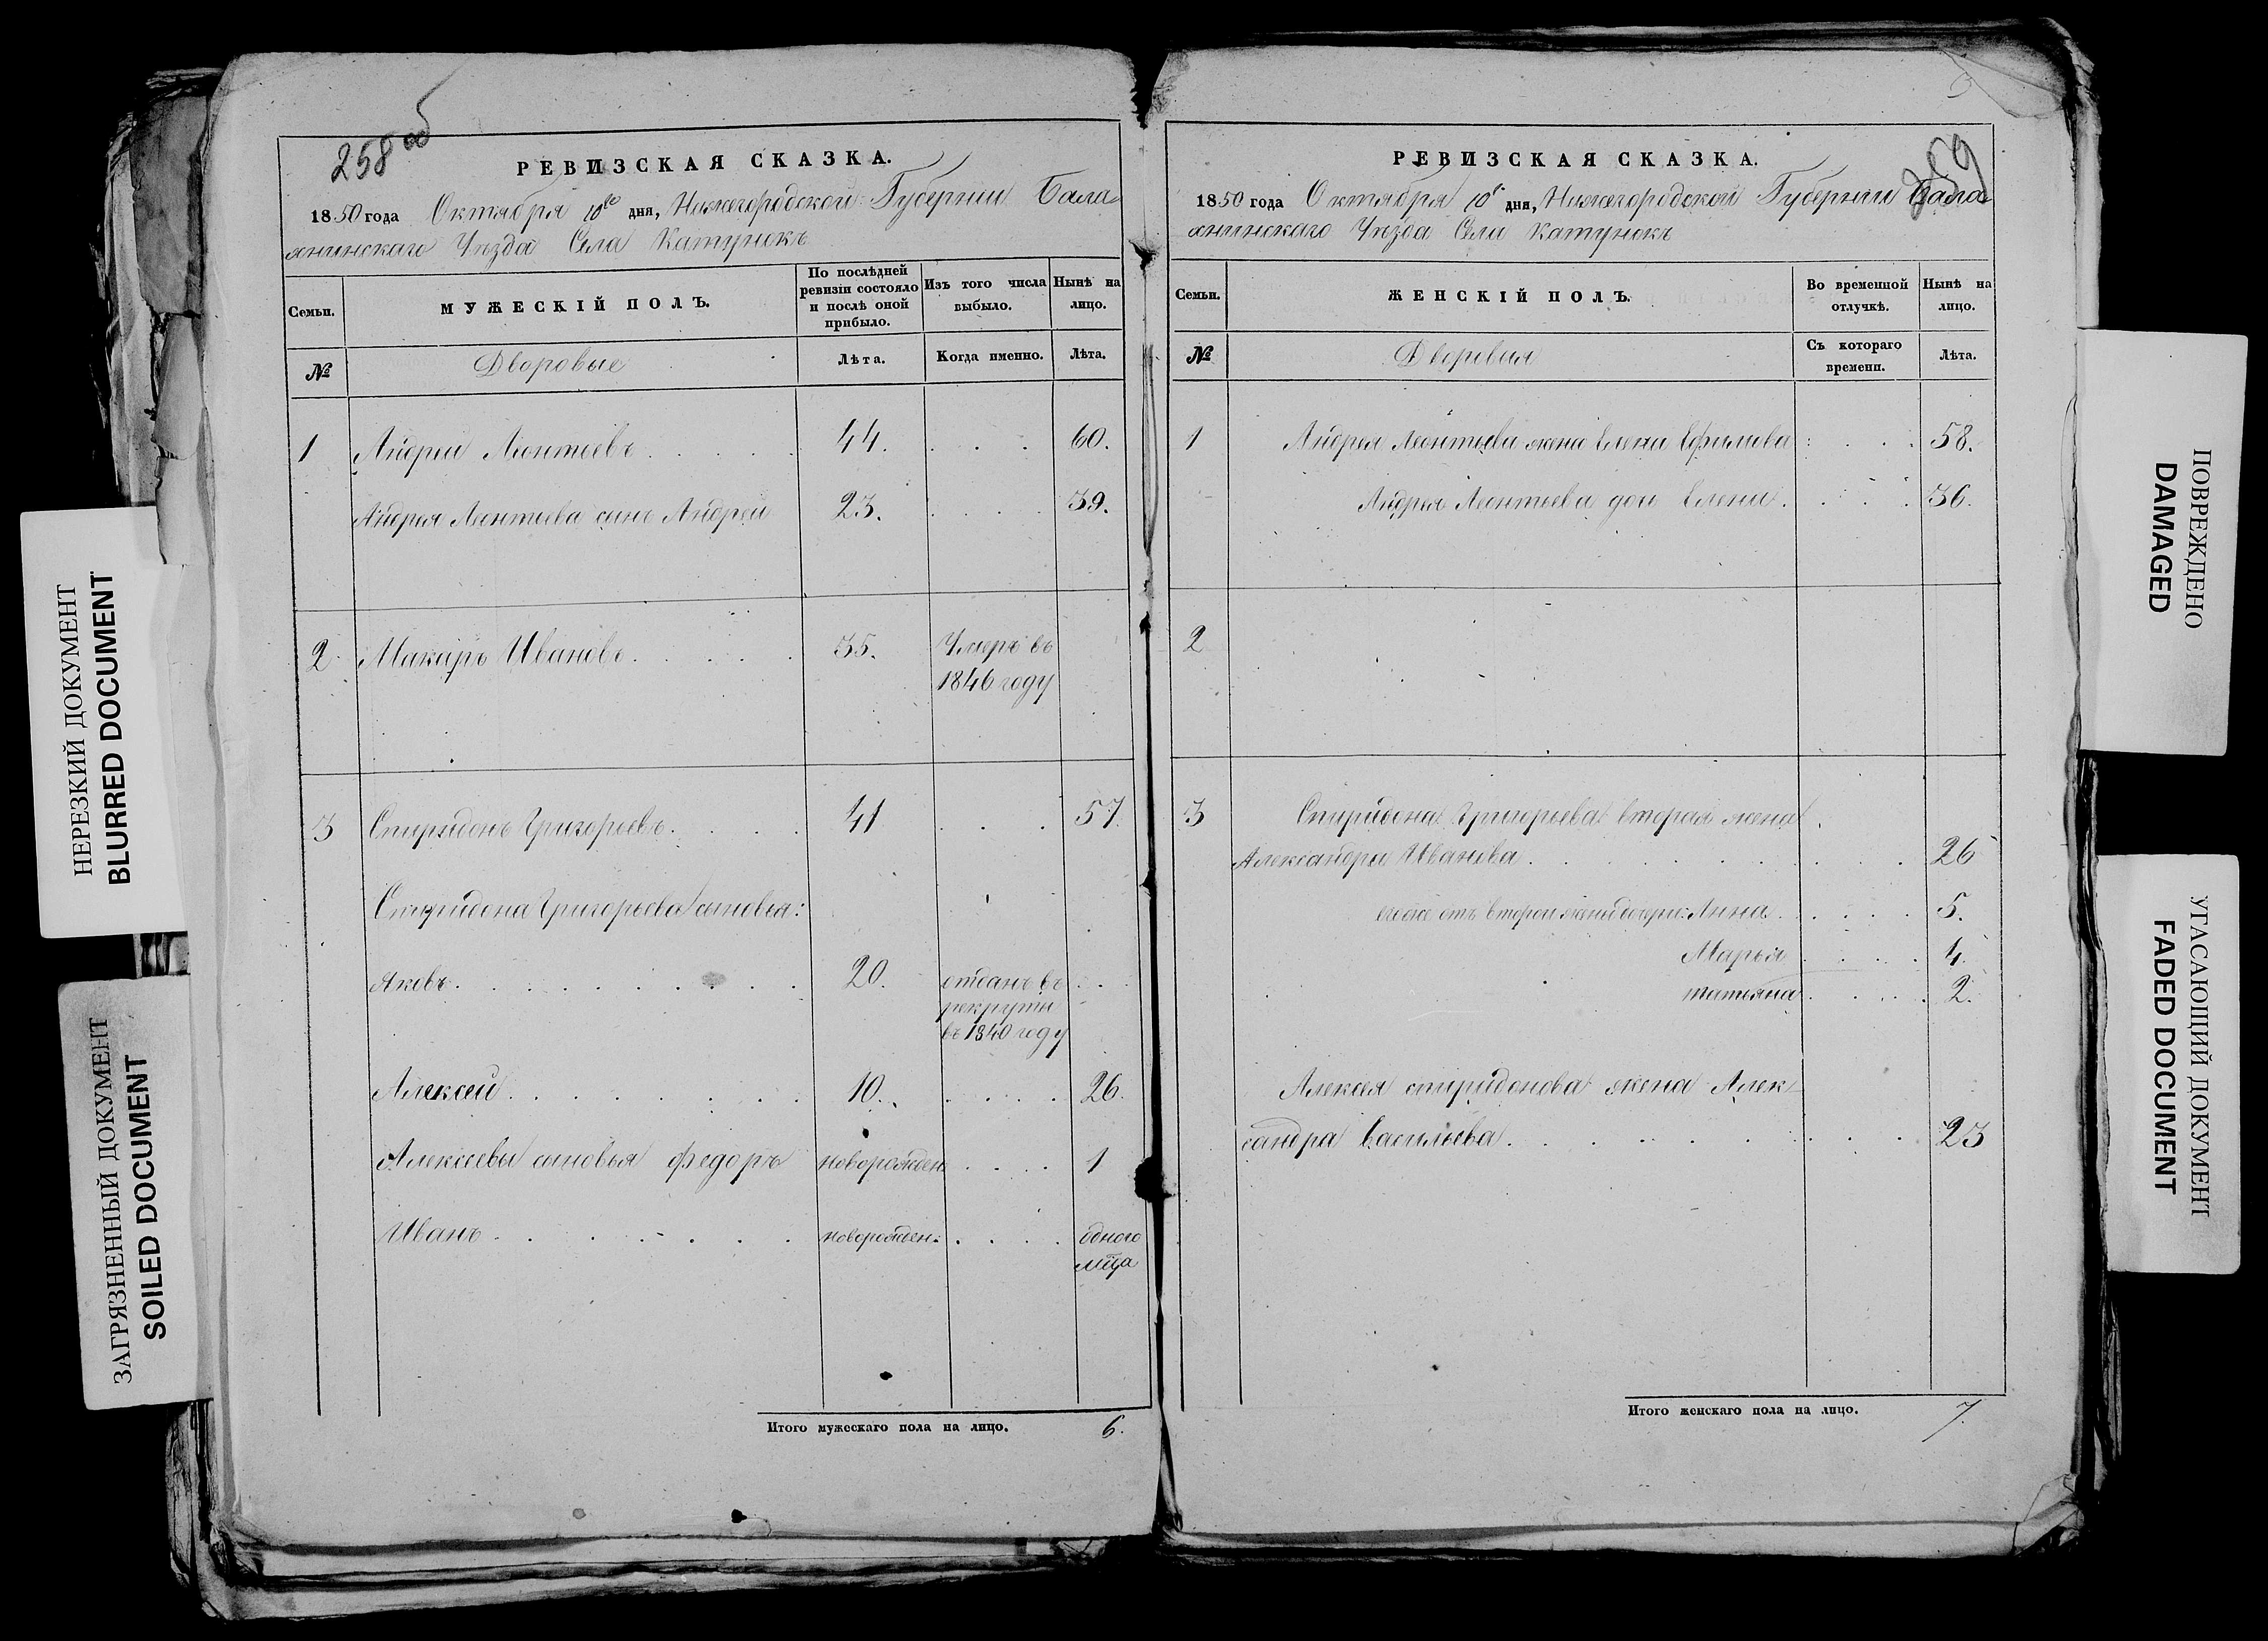 258 об
РЕВИЗСКАЯ СКАЗКА.
1850 года Октября 10го дня, Нижегородской Губернии Бала
хнинскаго Уѣзда Села Катунокъ
Семьи.
МУЖЕСКІЙ ПОЛЪ.
По послѣдней
ревизіи состояло
и послѣ оной
прибыло.
Изъ того числа
выбыло.
Нынѣ на
лицо.
№
Дворовые
Лѣта.
Когда именно.
Лѣта.
1 Андрей Леонтьевъ. . . . . . 44. . . . 60.
Андрея Леонтьева сынъ Андрей 23. . . . . 39.
2 Макаръ Ивановъ. . . . . . 35. Умеръ въ
1846 году
3 Спиридонъ Григорьевъ. . . . . 41 . . . 57.
Спиридона Григорьева сыновья:
Яковъ. . . . . . . . . . 20. отданъ въ . . .
рекруты
въ 1840 году
Алексей. . . . . . . . 10. . . . . 26.
Алексеевы сыновья Федоръ новорожден . . . . 1
Иванъ. . . . . . . новорожден: . . . . одного
мца
Итого мужескаго пола на лицо. 6.
259
РЕВИЗСКАЯ СКАЗКА.
1850 года Октября 10 дня, Нижегородской Губернии Бала
хнинскаго Уѣзда Села Катунокъ
Семьи.
ЖЕНСКІЙ ПОЛЪ.
Во временной
отлучкѣ.
Нынѣ на
лицо.
№
Дворовыя
Съ котораго
времени.
Лѣта.
1 Андрея Леонтьева жена Елена Ефимова : . . . 58.
Андрея Леонтьева доч Елена . . . . . 36.
2
3 Спиридона Григорьева вторая жена
Александра Иванова . . . . . . . . . . 26
егоже отъ второй жены дочери: Анна . . . . . 5.
Марья . . . . 4.
татьяна . . . . 2.
Алексея спиридонова жена Алек
сандра Васильева . . . . . . . . . 23
Итого женскаго пола на лицо. 7.
НЕРЕЗКИЙ ДОКУМЕНТ
BLURRED DOCUMENT
ЗАГРЯЗНЕННЫЙ ДОКУМЕНТ
SOILED DOCUMENT
ПОВРЕЖДЕНО
DAMAGED
УГАСАЮЩИЙ ДОКУМЕНТ
FADED DOCUMENT